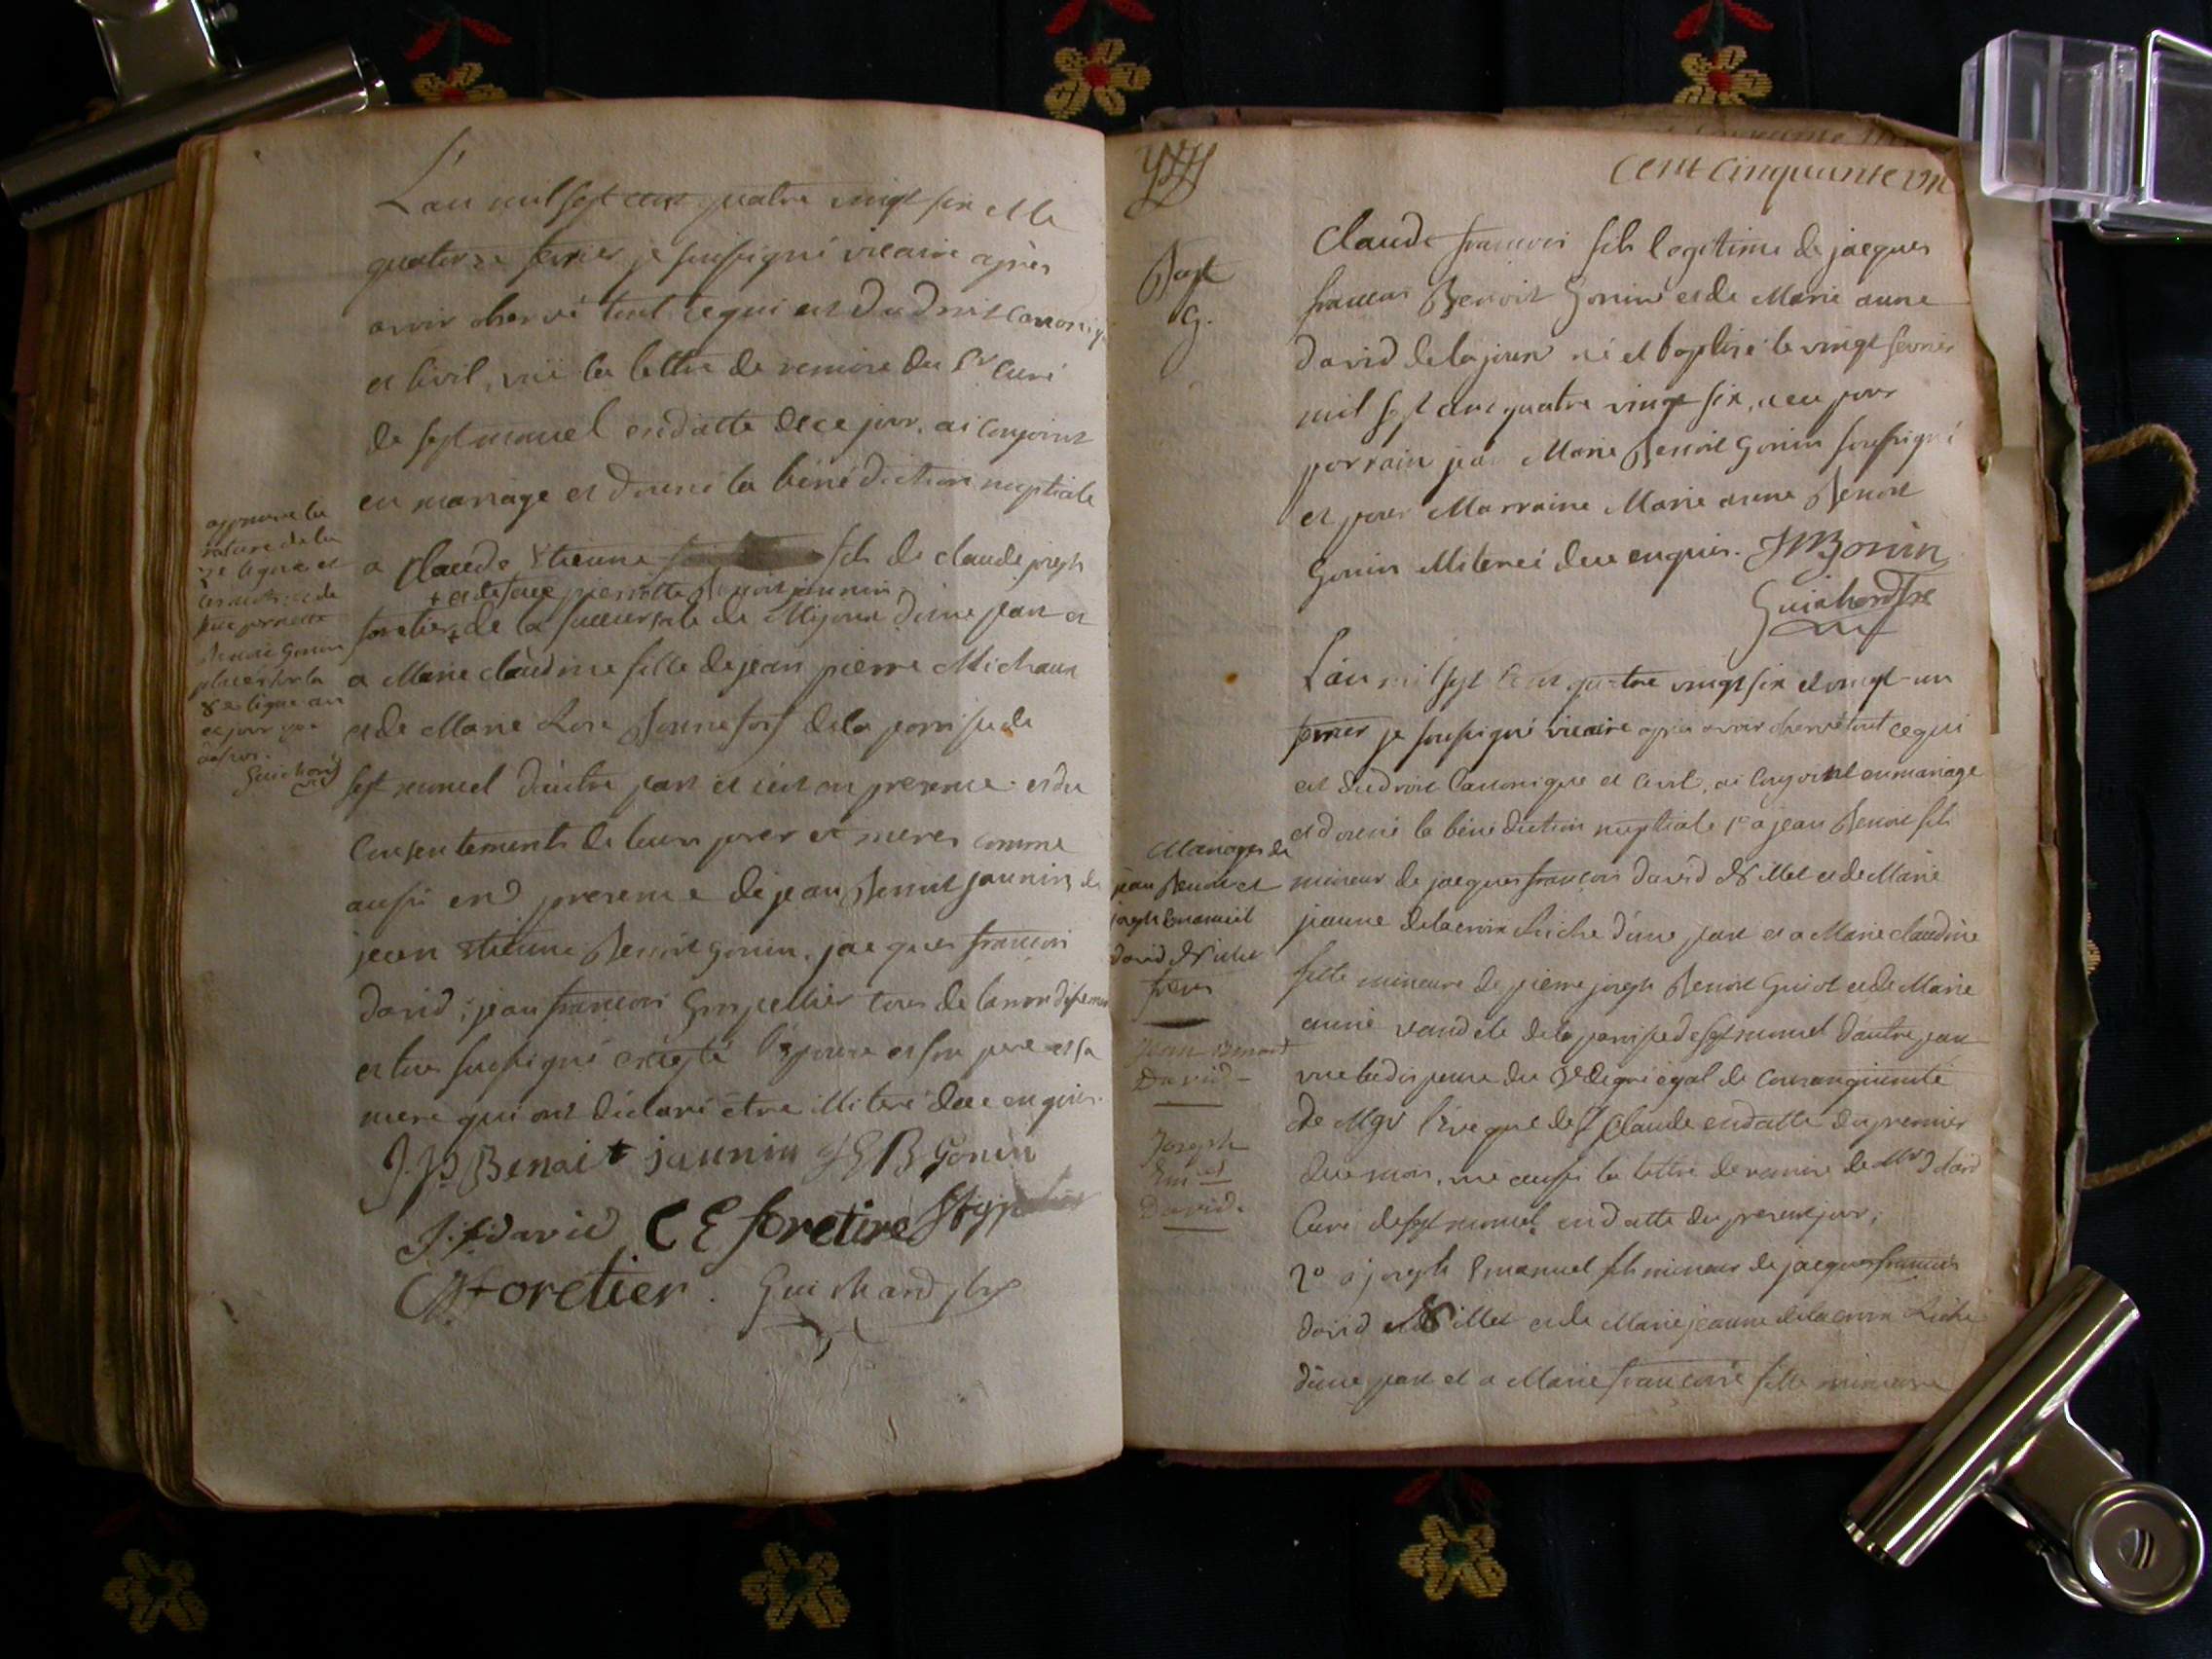 L'an mil sept cent quatre vingt six et le
quatorze fevrier je soussigné vicaire après
avoir observé tout ce qui est du droit canoniq
et civil, vüe la lettre de remise du Sr Curé
de septmoncel en datte de ce jour, ai conjoint
en mariage et donné la bénédiction nuptiale
a claude Etienne fils de claude joseph
+ et de feue pierrette Benoit jaunin
foretier + de la succursale de Mijoux d'une part et
a Marie claudine fille de jean pierre Michaux
et de Marie Rose Bonnefoy de la paroisse de
septmoncel d'autre part et ce en presence et du
consentements de leurs peres et meres comme
aussi en presence de jean Benoit jaunin, de
jean etienne Benoit gonin, jacques françois
david, jean françois Grospellier tous de la
et tous soussigné excepté l'epouse et son pere et sa
mere qui ont déclaré être illiteré due enquis.
J. P. Benoit jaunin J E B Gonin
J. f. david C E foretire
C J foretier. Guichard ptre
approuvé la
rature de la
7e ligne et
les mots et de
feue pierrette
Benoit Gonin
placés sur la
8e ligne au
ce jour que
dessus.
Guichard
cent cinquante un
Bapt
G.
Claude francois fils legitime de jacques
francois Benoit Gonin et de Marie anne
david de lajoux né et baptisé le vingt fevrier
mil sept cent quatre vingt six, a eu pour
parrain jean Marie Benoit Gonin soussigné
et pour Marraine Marie anne Benoit
Gonin illiteréi due enquis. JMB Gonin
Guichard ptre
L'an mil sept cent quatre vingt six et vingt-un
fevrier je soussigné vicaire apres avoir observé tout ce qui
est du droit Canonique et Civil, ai conjoint en mariage
et donné la bénédiction nuptiale 1° a jean Benoit fils
mineur de jacques françois david et de Marie
jeanne delacroix Riche d'une part et a Marie claudine
fille mineure de pierre joseph Benoit Guiot et de Marie
anne vandele de la paroisse de septmoncel d'autre part
vue la dispense du degré egal de Consanguinité
de Mgr l'eveque de St Claude en datte du premier
due mois, vue aussi la lettre de remise de Mr
Curé de septmoncel en datte du present jour;
2° a joseph Emanuel fils mineur de jacques francois
david et de Marie jeanne delacroix Riche
d'une part et a Marie francoise fille mineure
Mariages de
jean Benoit et
joseph Emanuel
david
freres
Jean Benoit
David
Joseph
Em el
David.